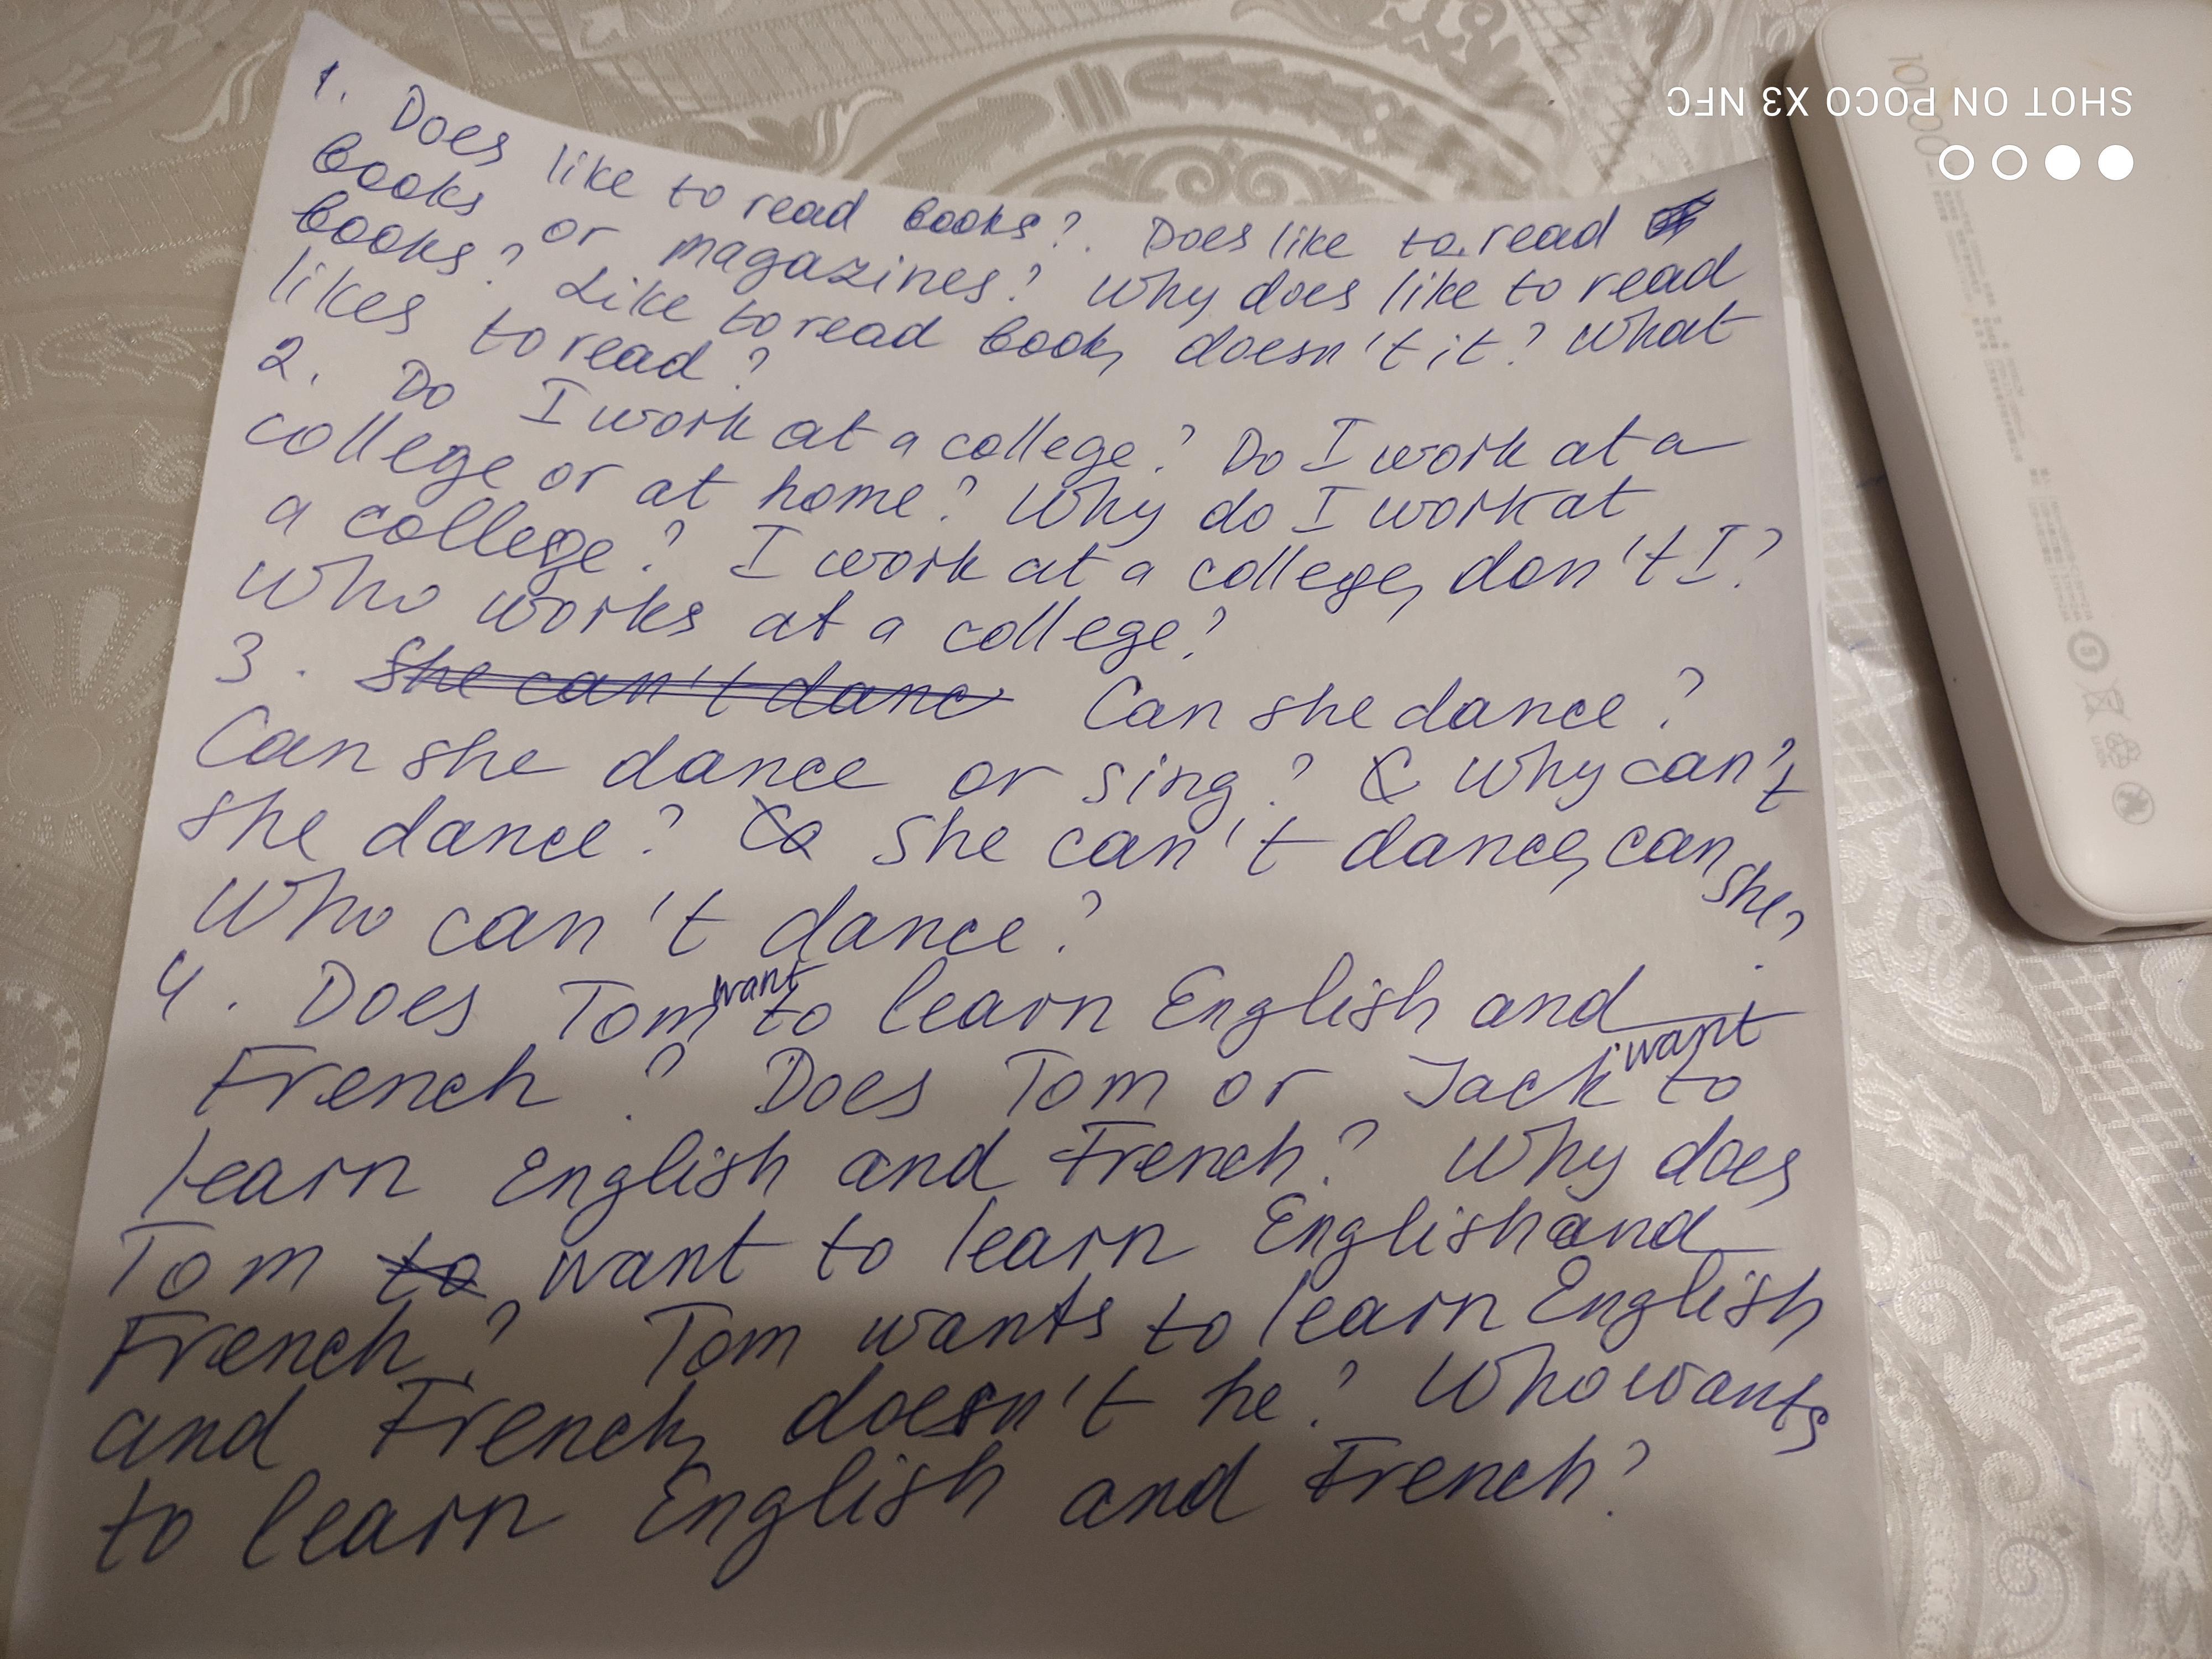 1. Does like to read books?. Does like to read
books or magazines? Why does like to read
books? Like to read book, doesn't it? What
likes to read?
2. Do I work at a college? Do I work at a
college or at home? Why do I work at
a college? I work at a college, don't I?
Who works at a college?
3. She can't danc Can she dance?
Can she dance or sing? C Why can't
she dance? Ca She can't dance, can she?
Who can't dance?
4. Does Tom want to learn English and
French? Does Tom or Jack want to
learn English and French? Why does
Tom to want to learn English and
French? Tom wants to learn English
and French, doesn't he? Who wants
to learn English and French?
SHOT ON POCO X3 NFC